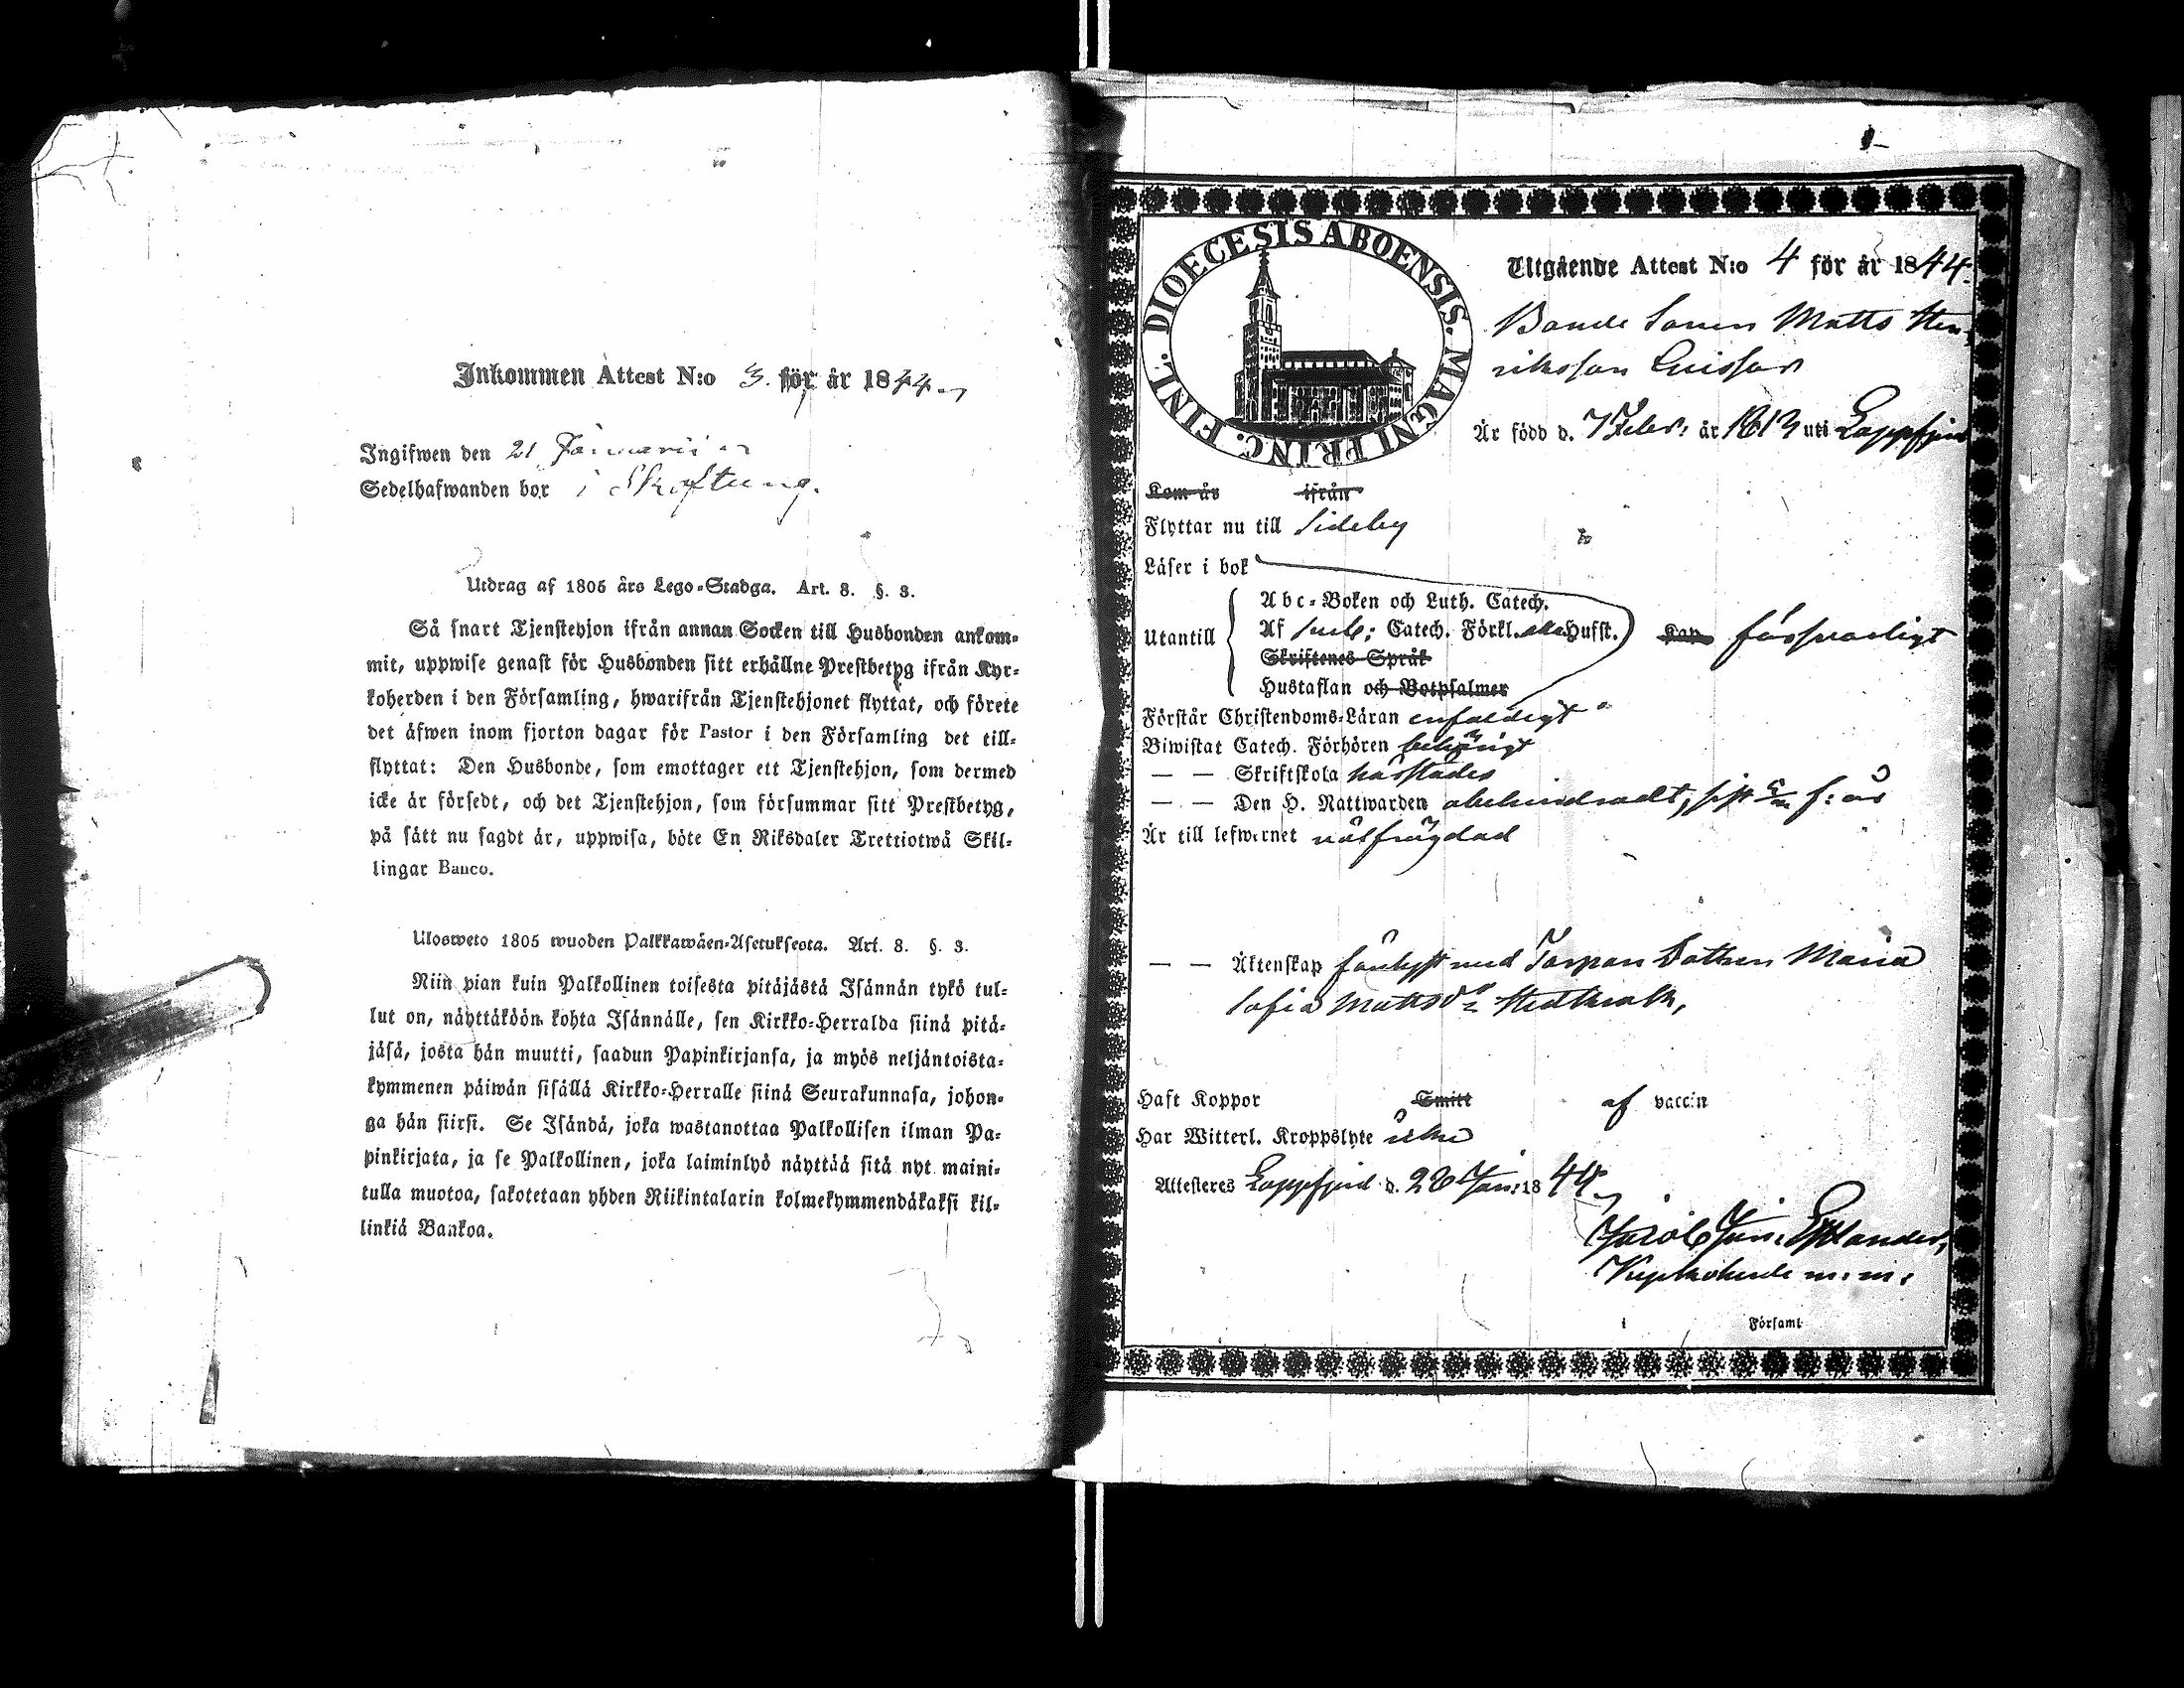 Inkommen Attest N:o 3. för år 1844.
Ingifwen den 21 Januarii
Sedelhafwanden bor i Skaftung.
Utdrag af 1805 års Lego-Stadga. Art. 8. §. 3.
Så snart Tjenstehjon ifrån annan Socken till Husbonden ankom-
mit, uppwise genast för Husbonden sitt erhållne Prestbetyg ifrån Kyr-
koherden i den Församling, hwarifrån Tjenstehjonet flyttat, och förete
det äfwen inom fjorton dagar för Pastor i den Församling det till-
flyttat: Den Husbonde, som emottager ett Tjenstehjon, som dermed
icke är försedt, och det Tjenstehjon, som försummar sitt Prestbetyg,
på sätt nu sagdt är, uppwisa, böte En Riksdaler Trettiotwå Skil-
lingar Banco.
Ulosweto 1805 wuoden Palkkawäen-Asetuksesta. Art. 8. §. 3.
Niin pian kuin Palkollinen toisesta pitäjästä Isännän tykö tul-
lut on, näyttäköön kohta Isännälle, sen Kirkko-Herralda siinä pitä-
jäsä, josta hän muutti, saadun Papinkirjansa, ja myös neljäntoista-
kymmenen päiwän sisällä Kirkko-Herralle siinä Seurakunnasa, johon-
ga hän siirsi. Se Isändä, joka wastanottaa Palkollisen ilman Pa-
pinkirjata, ja se Palkollinen, joka laiminlyö näyttää sitä nyt maini-
tulla muotoa, sakotetaan yhden Riikintalarin kolmekymmendäkaksi kil-
linkiä Bankoa.
DIOECESIS ABOENSIS. MAGNI PRINC. FINL.
Utgående Attest N:o 4 för år 1844.
Bonde Sonen Matts Hen-
riksson
Är född d. 7 Febr: år 1813 uti Lappfjerd
Kom år ifrån
Flyttar nu till Sideby
Läser i bok
Abc-Boken och Luth. Catech.
Utantill Af Catech. Förkl. Hufst. Kap försvarligt
Skriftenes Språk
Hustaflan och Botpsalmer
Förstår Christendoms-Läran enfaldigt
Biwistat Catech. Förhören behörigt
— — Skriftskola härstädes
— — Den H. Nattwarden obehindradt, sist f: år
Är till lefwernet wälfrägdad
— — Äktenskap förlyst med Torpare Dottren Maria
Sofia Mattsdr
Haft Koppor Smitt af vaccin
Har Witterl. Kroppslyte icke
Attesteras Lappfjerd d. 20 Jan: 1844.
Jacob Jon:
Kyrkoherde m. m.
i Församl